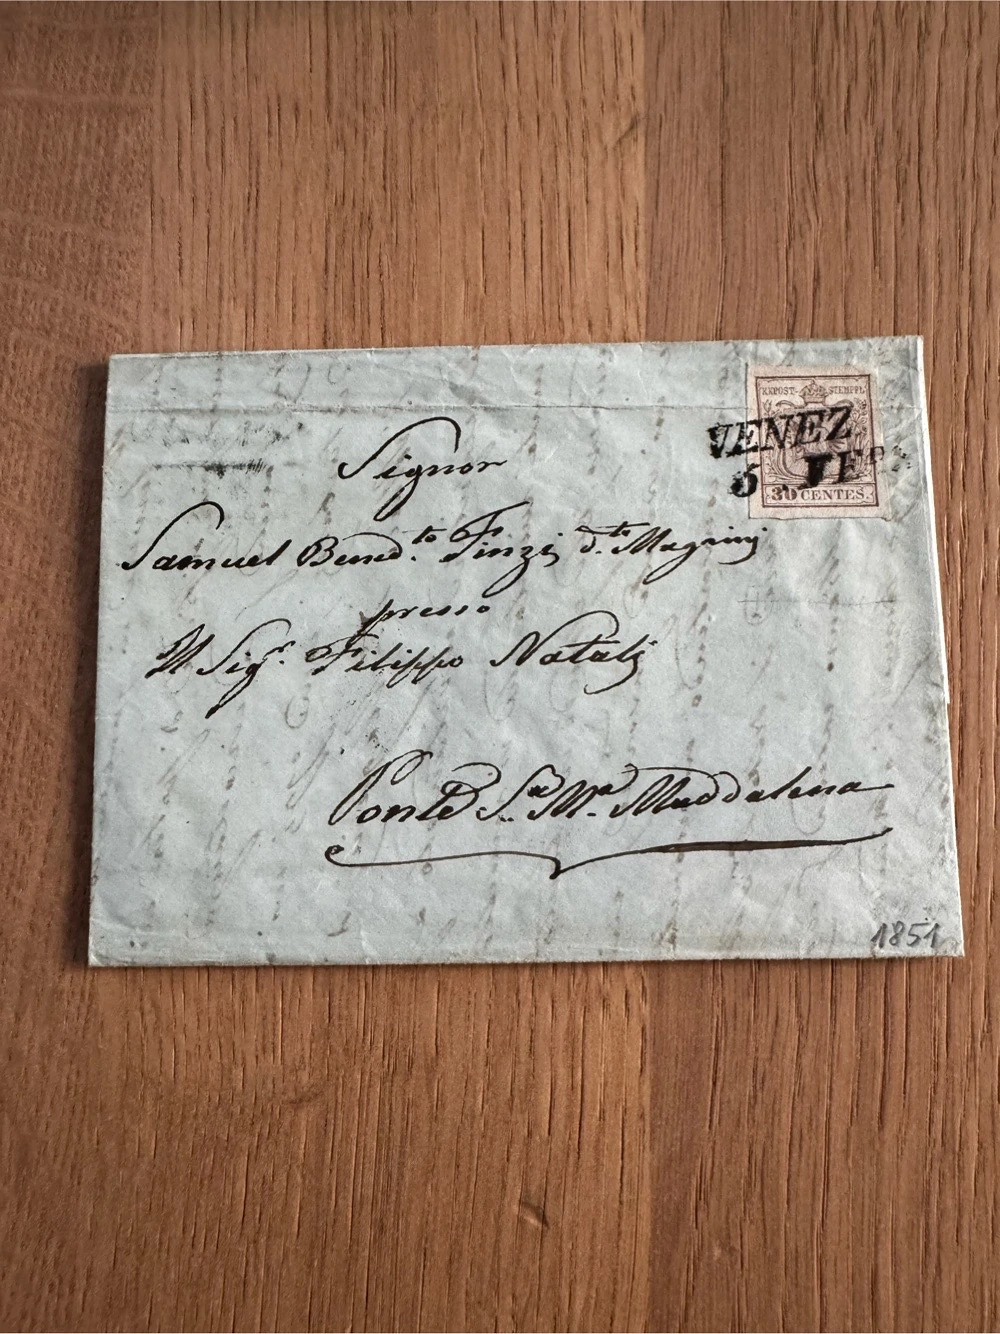 KKPOST-STEMPEL
VENEZ
5. FEB
30 CENTES.
Signor
Samuel Bened.to Finzi d.to Magrini
presso
Il Sigr. Filippo Natali
Ponte S. Ma. Maddalena
1851